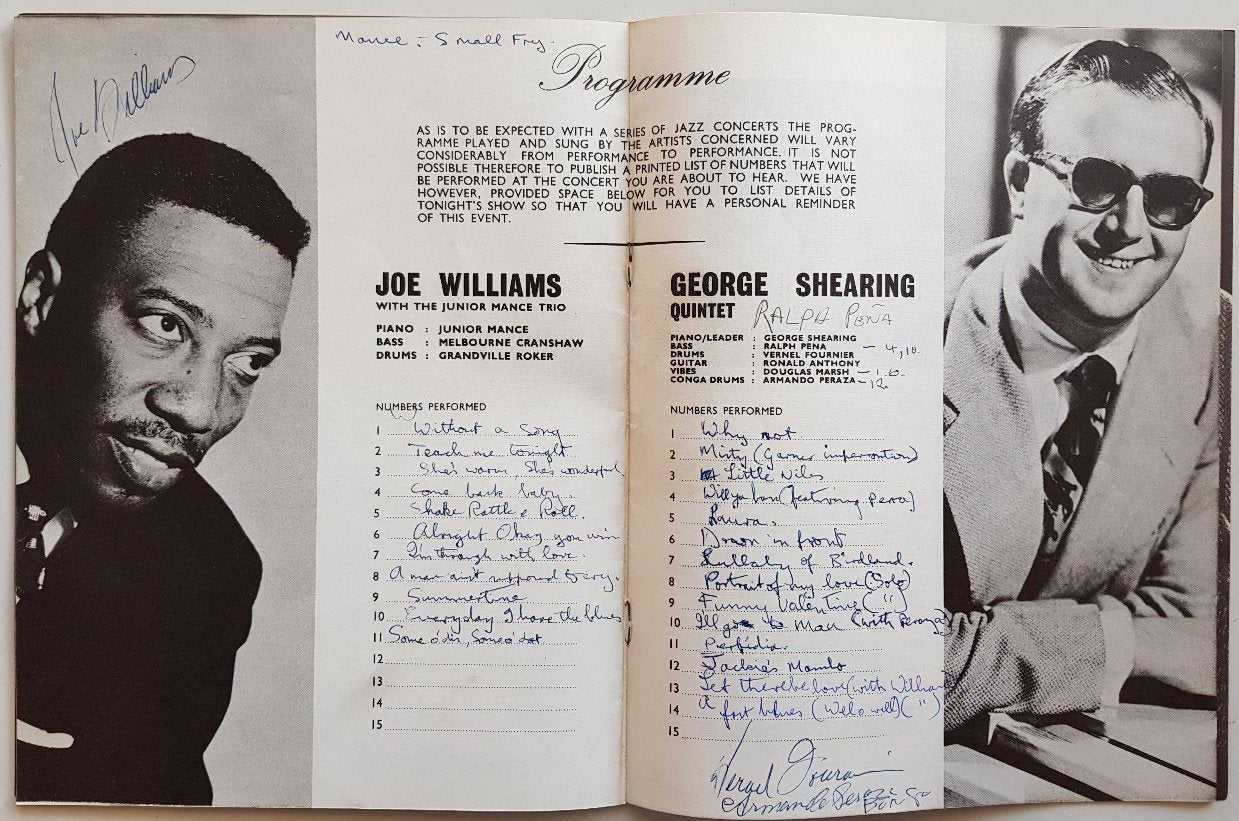 Joe Williams
Mance :- Small Fry.
Programme
AS IS TO BE EXPECTED WITH A SERIES OF JAZZ CONCERTS THE PROG-
RAMME PLAYED AND SUNG BY THE ARTISTS CONCERNED WILL VARY
CONSIDERABLY FROM PERFORMANCE TO PERFORMANCE. IT IS NOT
POSSIBLE THEREFORE TO PUBLISH A PRINTED LIST OF NUMBERS THAT WILL
BE PERFORMED AT THE CONCERT YOU ARE ABOUT TO HEAR. WE HAVE
HOWEVER, PROVIDED SPACE BELOW FOR YOU TO LIST DETAILS OF
TONIGHT'S SHOW SO THAT YOU WILL HAVE A PERSONAL REMINDER
OF THIS EVENT.
JOE WILLIAMS
WITH THE JUNIOR MANCE TRIO
PIANO : JUNIOR MANCE
BASS : MELBOURNE CRANSHAW
DRUMS : GRANDVILLE ROKER
NUMBERS PERFORMED
1 Without a Song
2 Teach me tonight
3 She's warm, She's wonderful
4 Come back baby.
5 Shake Rattle & Roll.
6 Alright Okay you win
7 I'm through with love.
8 A man ain't supposed to cry.
9 Summertime
10 Everyday I have the blues
11 Some o' dis, Some o' dat
12
13
14
15
GEORGE SHEARING
QUINTET RALPH PEÑA
PIANO/LEADER : GEORGE SHEARING
BASS : RALPH PENA - 4, 10.
DRUMS : VERNEL FOURNIER
GUITAR : RONALD ANTHONY
VIBES : DOUGLAS MARSH - 1. 6.
CONGA DRUMS : ARMANDO PERAZA - 12.
NUMBERS PERFORMED
1 Why not.
2 Misty (Garner impersonation)
3 Little Niles
4 (featuring Pena)
5 Laura.
6 Drum in front
7 Lullaby of Birdland.
8 Portrait of my love (Solo)
9 Funny Valentine (")
10 I'll go to Man (with Peraza)
11 Perfidia.
12 Jackie's Mambo
13 Let there be love (with Williams)
14 A fast blues (") 
15
Armando Peraza
BONGO